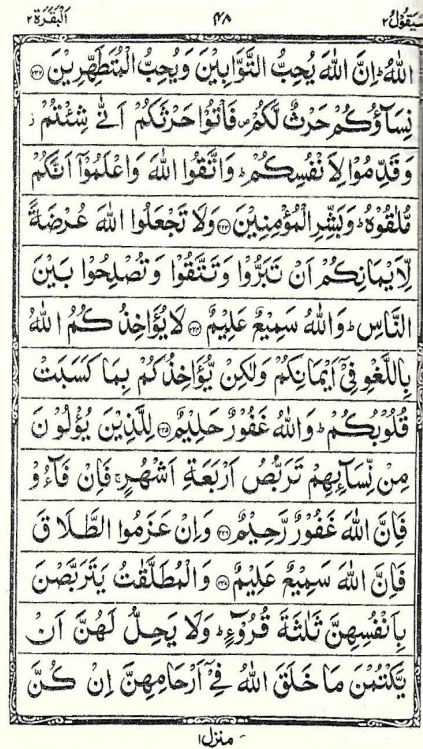 سَيَقُوْلُ ٢ ٤٨ اَلْبَقَرَة ٢
اللّٰهُ ؕ اِنَّ اللّٰهَ يُحِبُّ التَّوَّابِيْنَ وَيُحِبُّ الْمُتَطَهِّرِيْنَ ﴿۲۲۲﴾
نِسَآؤُكُمْ حَرْثٌ لَّكُمْ ۪ فَاْتُوْا حَرْثَكُمْ اَنّٰى شِئْتُمْ ز
وَقَدِّمُوْا لِاَنْفُسِكُمْ ؕ وَاتَّقُوا اللّٰهَ وَاعْلَمُوْٓا اَنَّكُمْ
مُّلٰقُوْهُ ؕ وَبَشِّرِ الْمُؤْمِنِيْنَ ﴿۲۲۳﴾ وَلَا تَجْعَلُوا اللّٰهَ عُرْضَةً
لِّاَيْمَانِكُمْ اَنْ تَبَرُّوْا وَتَتَّقُوْا وَتُصْلِحُوْا بَيْنَ
النَّاسِ ؕ وَاللّٰهُ سَمِيْعٌ عَلِيْمٌ ﴿۲۲۴﴾ لَا يُؤَاخِذُكُمُ اللّٰهُ
بِاللَّغْوِ فِيْٓ اَيْمَانِكُمْ وَلٰكِنْ يُّؤَاخِذُكُمْ بِمَا كَسَبَتْ
قُلُوْبُكُمْ ؕ وَاللّٰهُ غَفُوْرٌ حَلِيْمٌ ﴿۲۲۵﴾ لِلَّذِيْنَ يُؤْلُوْنَ
مِنْ نِّسَآئِهِمْ تَرَبُّصُ اَرْبَعَةِ اَشْهُرٍ ۚ فَاِنْ فَآءُوْ
فَاِنَّ اللّٰهَ غَفُوْرٌ رَّحِيْمٌ ﴿۲۲۶﴾ وَاِنْ عَزَمُوا الطَّلَاقَ
فَاِنَّ اللّٰهَ سَمِيْعٌ عَلِيْمٌ ﴿۲۲۷﴾ وَالْمُطَلَّقٰتُ يَتَرَبَّصْنَ
بِاَنْفُسِهِنَّ ثَلٰثَةَ قُرُوْٓءٍ ؕ وَلَا يَحِلُّ لَهُنَّ اَنْ
يَّكْتُمْنَ مَا خَلَقَ اللّٰهُ فِيْٓ اَرْحَامِهِنَّ اِنْ كُنَّ
منزل ۱